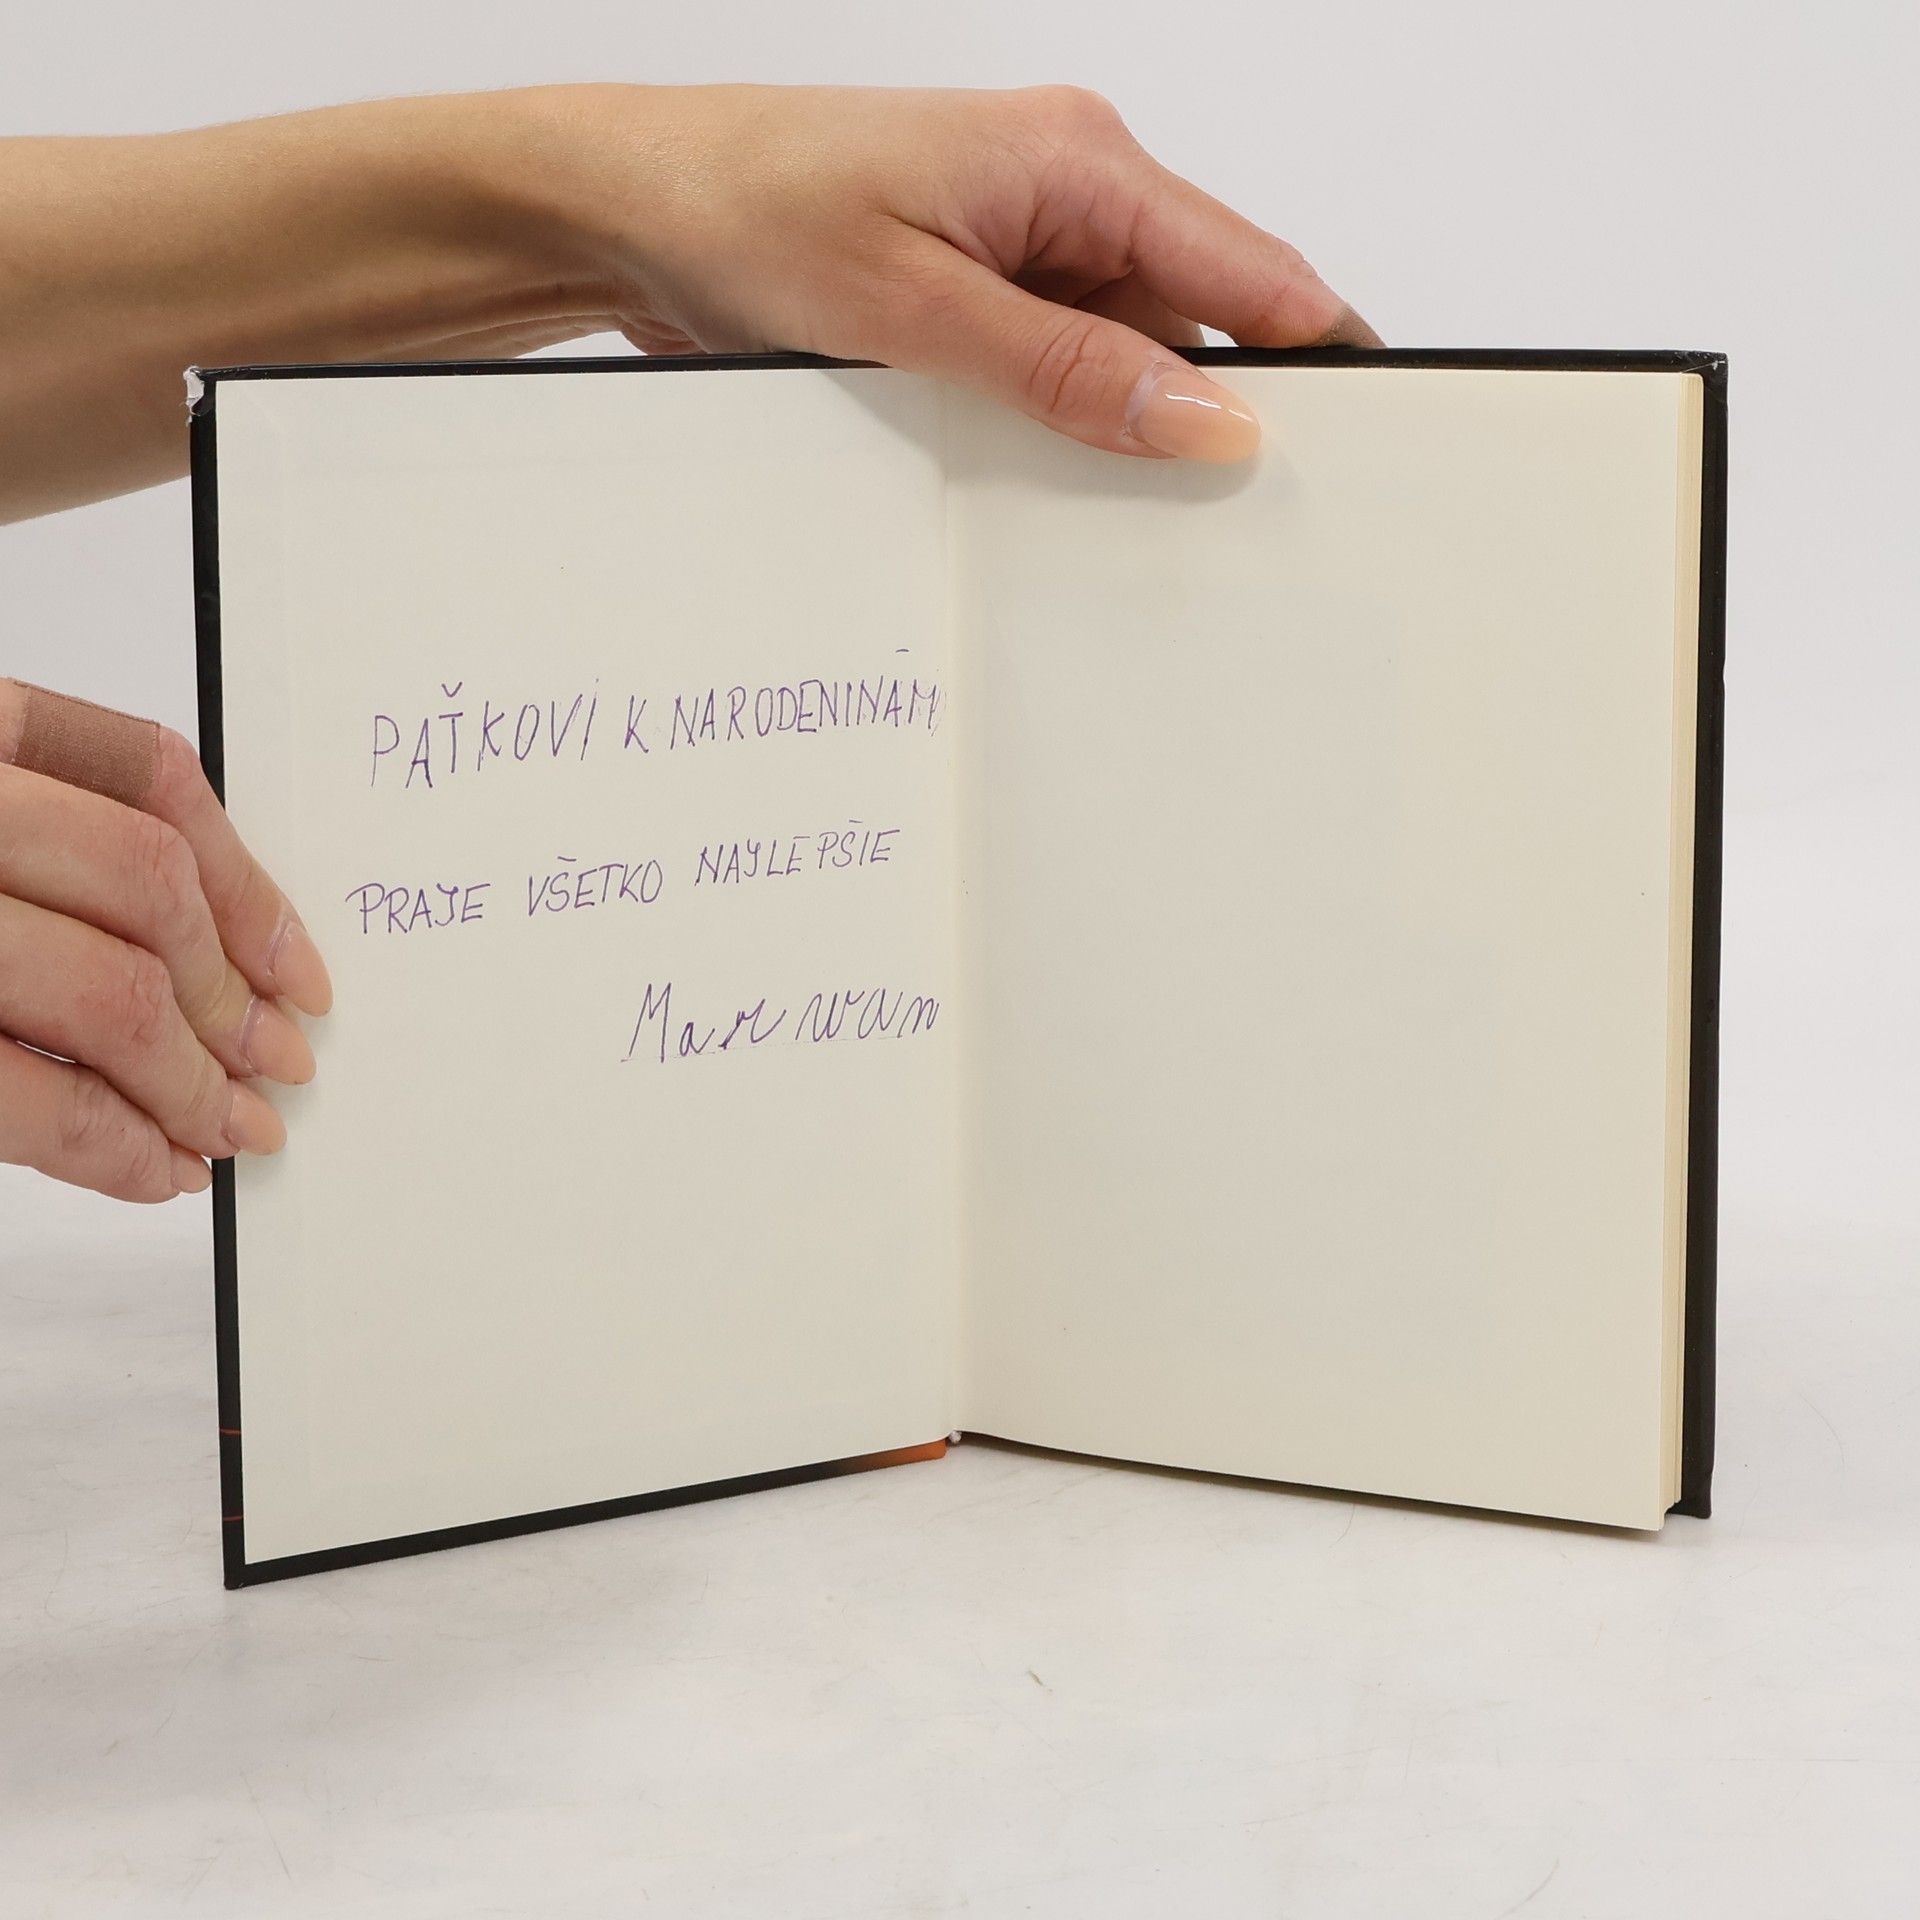 PAŤKOVI K NARODENINÁM
PRAJE VŠETKO NAJLEPŠIE
Marwan